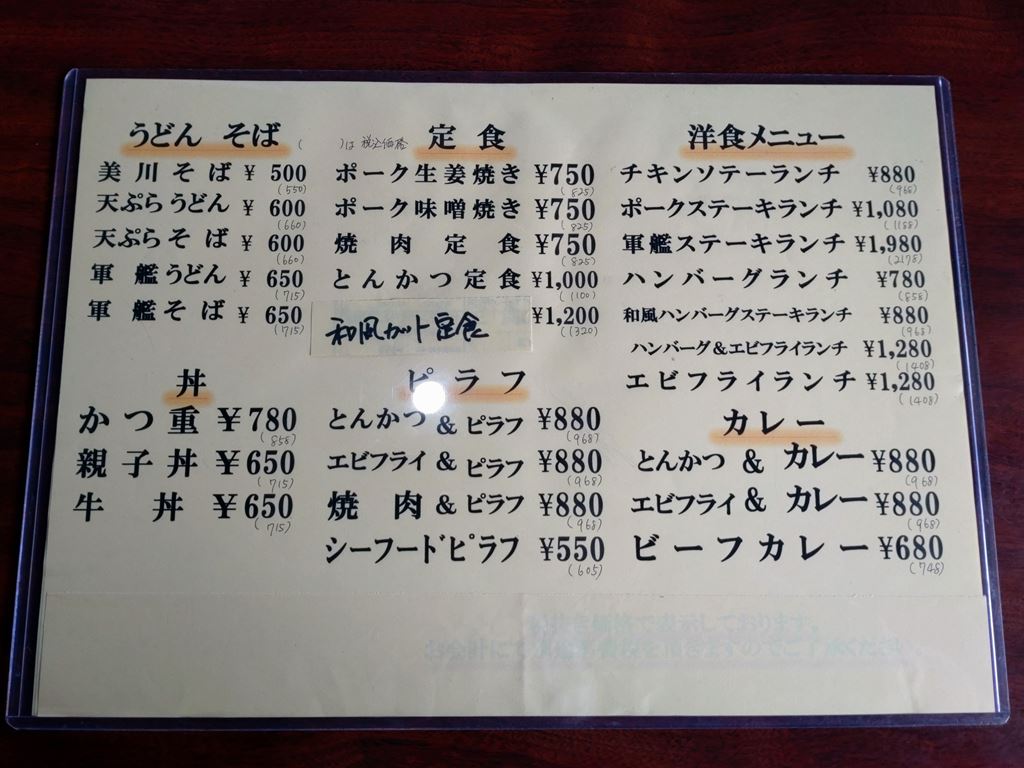 うどん そば
( )は税込価格
美川そば ¥500
(550)
天ぷらうどん ¥600
(660)
天ぷらそば ¥600
(660)
軍艦うどん ¥650
(715)
軍艦そば ¥650
(715)
丼
かつ重 ¥780
(858)
親子丼 ¥650
(715)
牛丼 ¥650
(715)
定食
ポーク生姜焼き ¥750
(825)
ポーク味噌焼き ¥750
(825)
焼肉定食 ¥750
(825)
とんかつ定食 ¥1,000
(1100)
和風カツト定食 ¥1,200
(1320)
ピラフ
とんかつ & ピラフ ¥880
(968)
エビフライ & ピラフ ¥880
(968)
焼肉 & ピラフ ¥880
(968)
シーフードピラフ ¥550
(605)
洋食メニュー
チキンソテーランチ ¥880
(968)
ポークステーキランチ ¥1,080
(1188)
軍艦ステーキランチ ¥1,980
(2178)
ハンバーグランチ ¥780
(858)
和風ハンバーグステーキランチ ¥880
(968)
ハンバーグ&エビフライランチ ¥1,280
(1408)
エビフライランチ ¥1,280
(1408)
カレー
とんかつ & カレー ¥880
(968)
エビフライ & カレー ¥880
(968)
ビーフカレー ¥680
(748)
価格で表示しております。
お会計にて